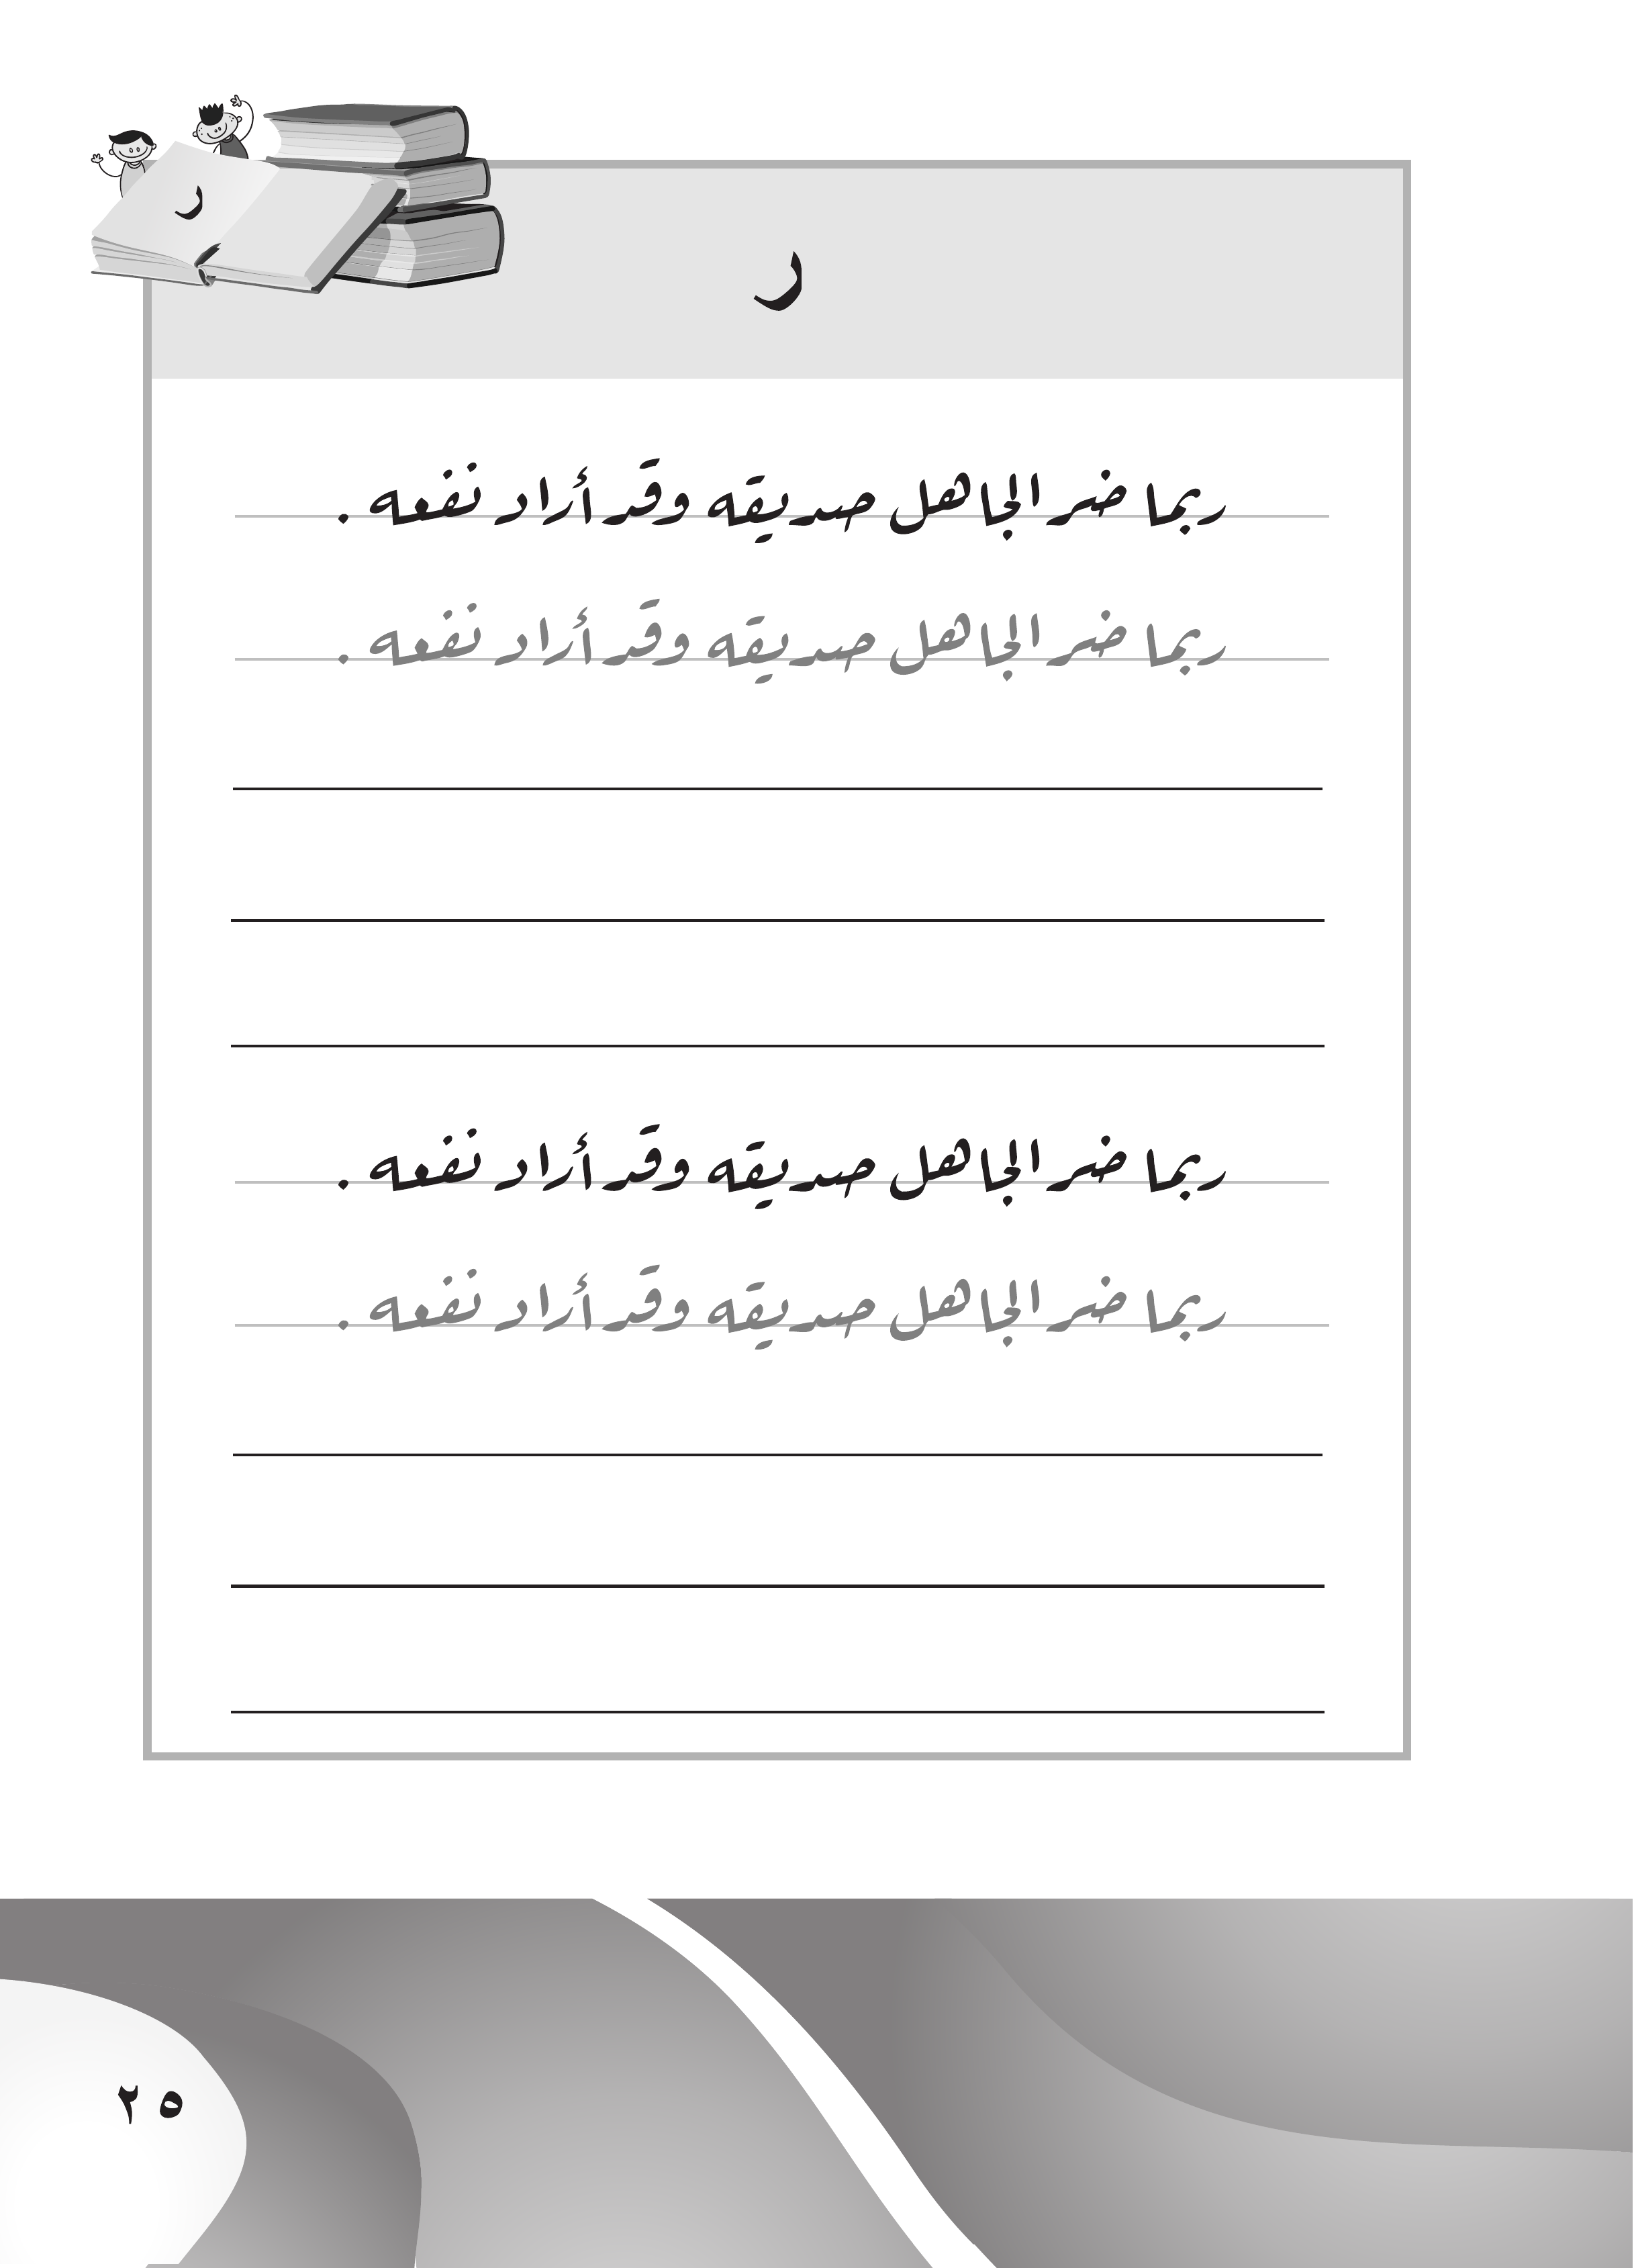 ر
ر
ربما ضر الجاهل صديقه وقد أراد نفعه .
ربما ضر الجاهل صديقه وقد أراد نفعه .
ربما ضر الجاهل صديقه وقد أراد نفعه .
ربما ضر الجاهل صديقه وقد أراد نفعه .
٢٥